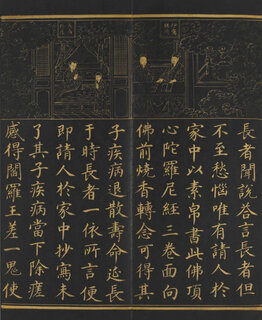 長者聞說答言長者但
不至愁惱唯有請人於
家中以素帛書此佛頂
心陀羅尼經三卷面向
佛前燒香轉念可得其
子疾病退散壽命延長
于時長者一依所言便
即請人於家中抄寫未
了其子疾病當下除瘥
感得閻羅王差一鬼使